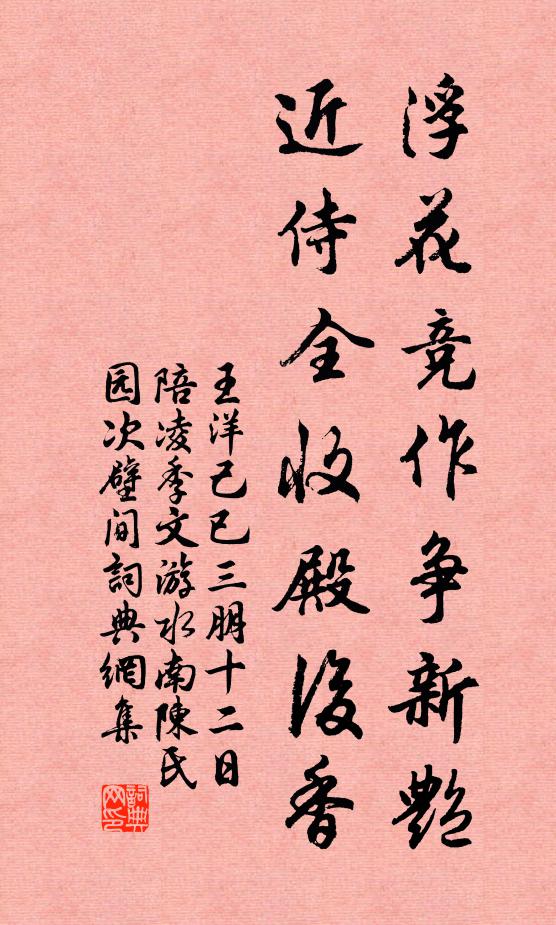 浮花竞作争新艷
近侍全收殿後香
王洋己巳三明十二日
陪凌季文游水南陳氏
园次壁间詞典網集
詞典网印